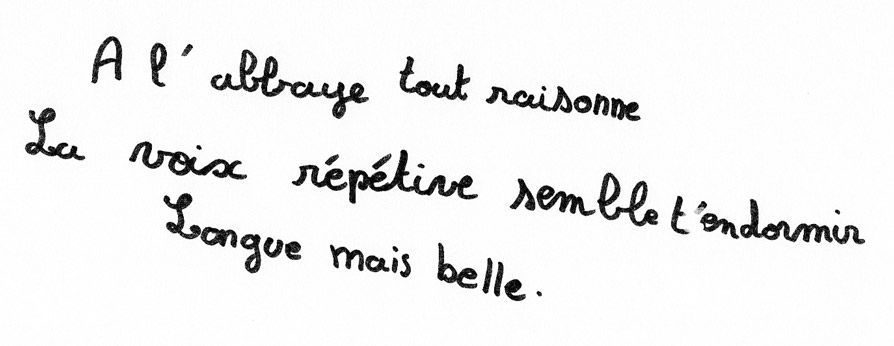 A l'abbaye tout raisonne
La voix répétive semble t'endormir
Longue mais belle.